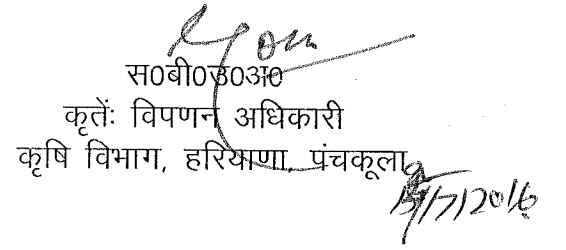 स0बी0उ0अ0
कृतेंः विपणन अधिकारी
कृषि विभाग, हरियाणा, पंचकूला
/7/2016